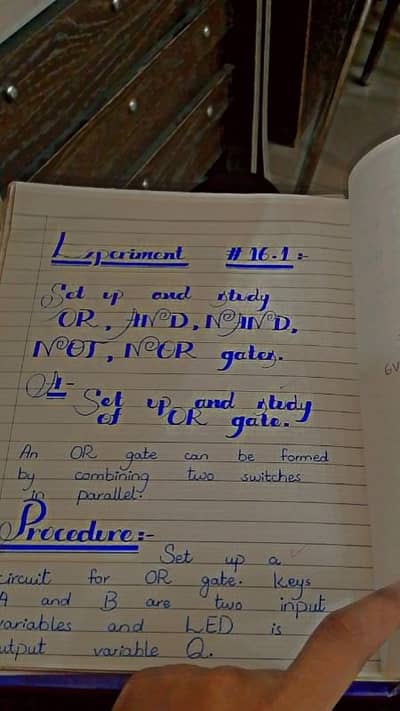 Experiment # 16.1 :-
Set up and study
OR, AND, NAND,
NOT, NOR gates.
Set up and study
of OR gate.
An OR gate can be formed
by combining two switches
in parallel.
Procedure:-
Set up a
circuit for OR gate. Keys
A and B are two input
variables and LED is
utput variable Q.
6V